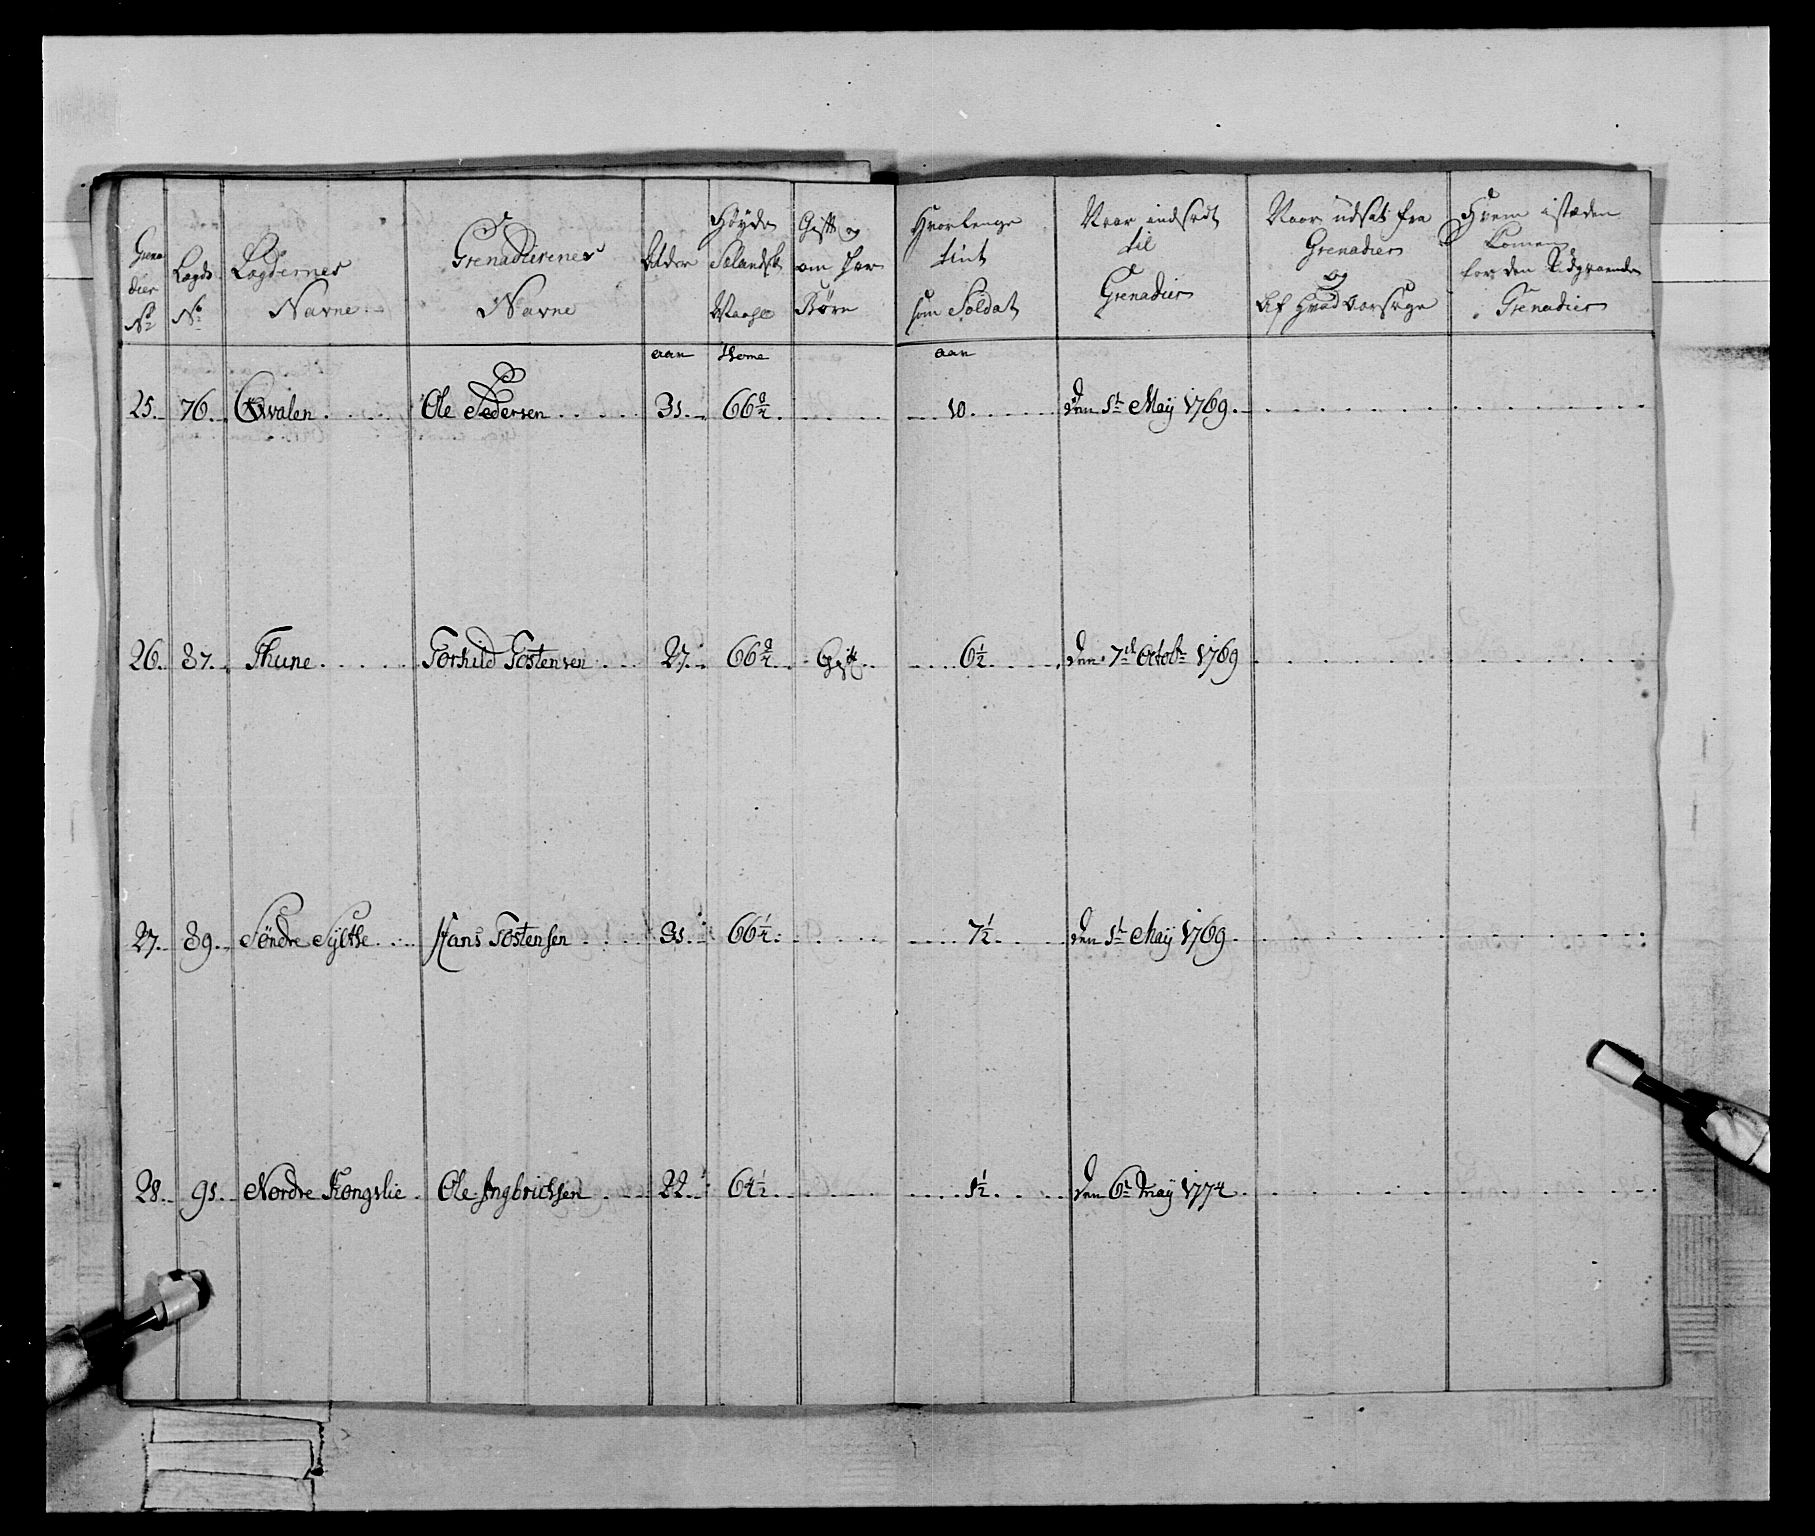 Grena
dier
No
Lægds
No
Lægdernes
Navne
Grenadierenes
Navne
Alder
Høyde
Sælandsk
Maahl
Gift og
om har
Børn
Hvorlenge
tient
som Soldat
Naar indsadt
til
Grenadier
Naar udsat fra
Grenadier
og
Af Hvad Aarsage
Hvem i stæden
komen
for den Udgaaende
Grenadier
aar Tome aar
25. 76. Qvalen Ole Pedersen 31. 66 3/4. 10. den 1t Maij 1769.
26. 87. Thune Torkild Tostensen 27. 66 3/4 Gift 6 1/2 den 7de Octobr 1769
27. 89. Søndre Sylthe Hans Tostensen 31. 66 1/4. 7 1/2 den 1t Maij 1769.
28. 91. Nordre Kongslie Ole Ingbrictsen 22. 64 1/2 1 1/2 den 6t Maij 1774.